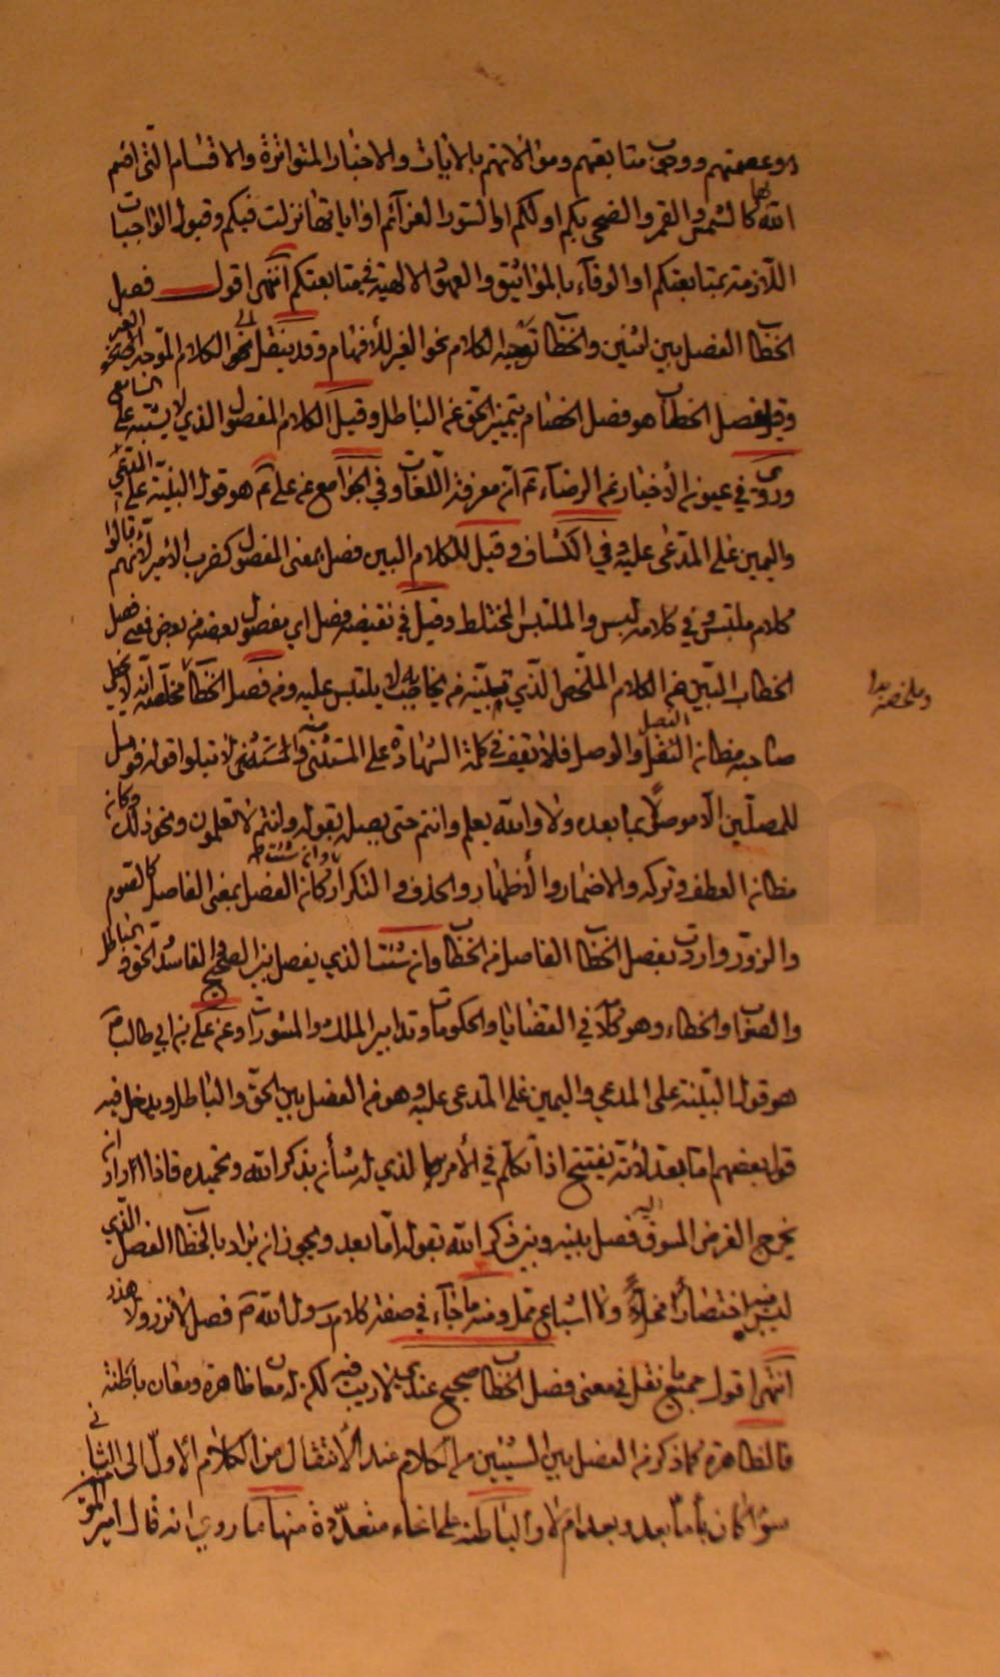 وعصمتهم ووجوب متابعتهم وموالاتهم بالايات والاخبار المتواترة والاقسام التى اقسم
الله بها كالشمس والقمر والضحى بكم او لكم او السور العزائم او اياتها نزلت فيكم وقبول الواجبات
اللازمة بمتابعتكم او الوفاء بالمواثيق والعهود الالهية في متابعتكم انتهى اقول فصل
الخطاب الفصل بين اثنين والخطاب توجيه الكلام نحو الغير للأفهام وقد ينقل الى الكلام الموجه
وقيل فصل الخطاب هو فصل الخصام بتمييز الحق عن الباطل وقيل الكلام المفصول الذي لا يشتبه على السامع
وروى في عيون الأخبار عن الرضاء ع انه معرفة اللغات وفي الجوامع عن على ع هو قوله البينة على المدعى
واليمين على المدعى عليه وفي الكشاف وقيل للكلام البين فصل بمعنى المفصول كضرب الامير لأنهم قالوا
كلام ملتبس وفي كلامه لبس والملتبس المختلط وقيل في نقيضه فصل اي مفصول بعضه من بعض فمعنى فصل
الخطاب البين من الكلام الملخص الذي يتبينه من يخاطب به لا يلتبس عليه ومن فصل الخطاب وملخصه انه لا يخطى
صاحبه مظان الفصل والوصل فلا يقف في كلمة الشهادة على المستثنى منه ولا يتلوا قوله فويل
للمصلين الا موصولا بما بعده ولا والله يعلم وانتم حتى يصله بقوله لا تعلمون ونحو ذلك وكذلك
مظان العطف وتركه والاضمار والأظهار والحذف والتكرار وان شئت كان الفصل بمعنى الفاصل كالصوم
والزور واردت بفصل الخطاب الفاصل من الخطاب الذي يفصل بين الصحيح والفاسد والحق والباطل
والصواب والخطاء وهو كلامه في القضايا والحكومات وتدابير الملك والمشورات وعن على بن ابي طالب ع
هو قوله البينة على المدعي واليمين على المدعى عليه وهو من الفصل بين الحق والباطل ويدخل فيه
قول بعضهم اما بعد لأنه يفتتح اذا تكلم في الأمر الذي له شأن بذكر الله وتحميده فاذا اراد ان
يخرج الى الغرض المسوق اليه فصل بينه وبين ذكر الله بقوله اما بعد ويجوز ان يراد بالخطاب الفصل الذي
ليس فيه اختصار مخل ولا اشباع ممل ومنه ما جاء في صفة كلام رسول الله ص فصل لا نزر ولا هذر
انتهى اقول جميع ما نقل في معنى فصل الخطاب صحيح عندى لا ريب فيه لكن له معان ظاهرة ومعان باطنة
فالظاهرة كما ذكر من الفصل بين الشيئين من الكلام عند الأنتقال من الكلام الاول الى الثانى
سواء كان بأما بعد وبعد ام لا والباطنة على انحاء متعددة منها ما روي انه قال امير المؤمنين